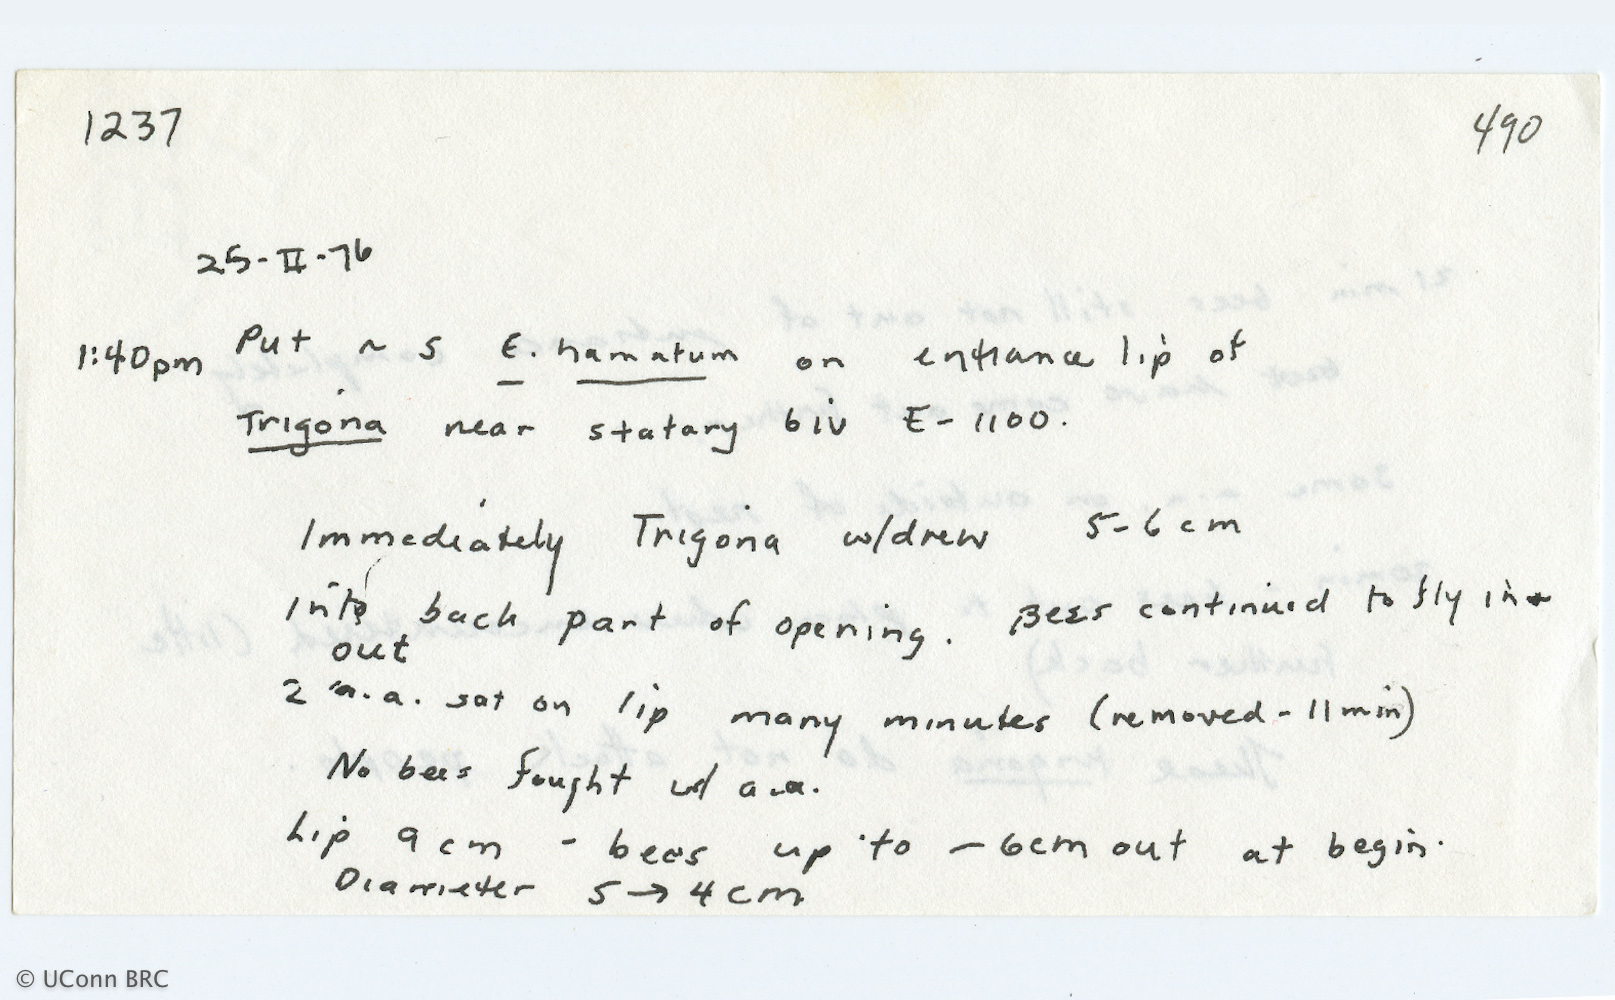 1237 490
25-II-76
1:40pm Put ~ 5 E. hamatum on entrance lip of
Trigona near statary biv E-1100.
Immediately Trigona w/drew 5-6 cm
into back part of opening. Bees continued to fly in +
out
2 a.a. sat on lip many minutes (removed - 11 min)
No bees fought w/ a.a.
Lip 9 cm - bees up to ~6cm out at begin.
Diameter 5 → 4 cm
© UConn BRC